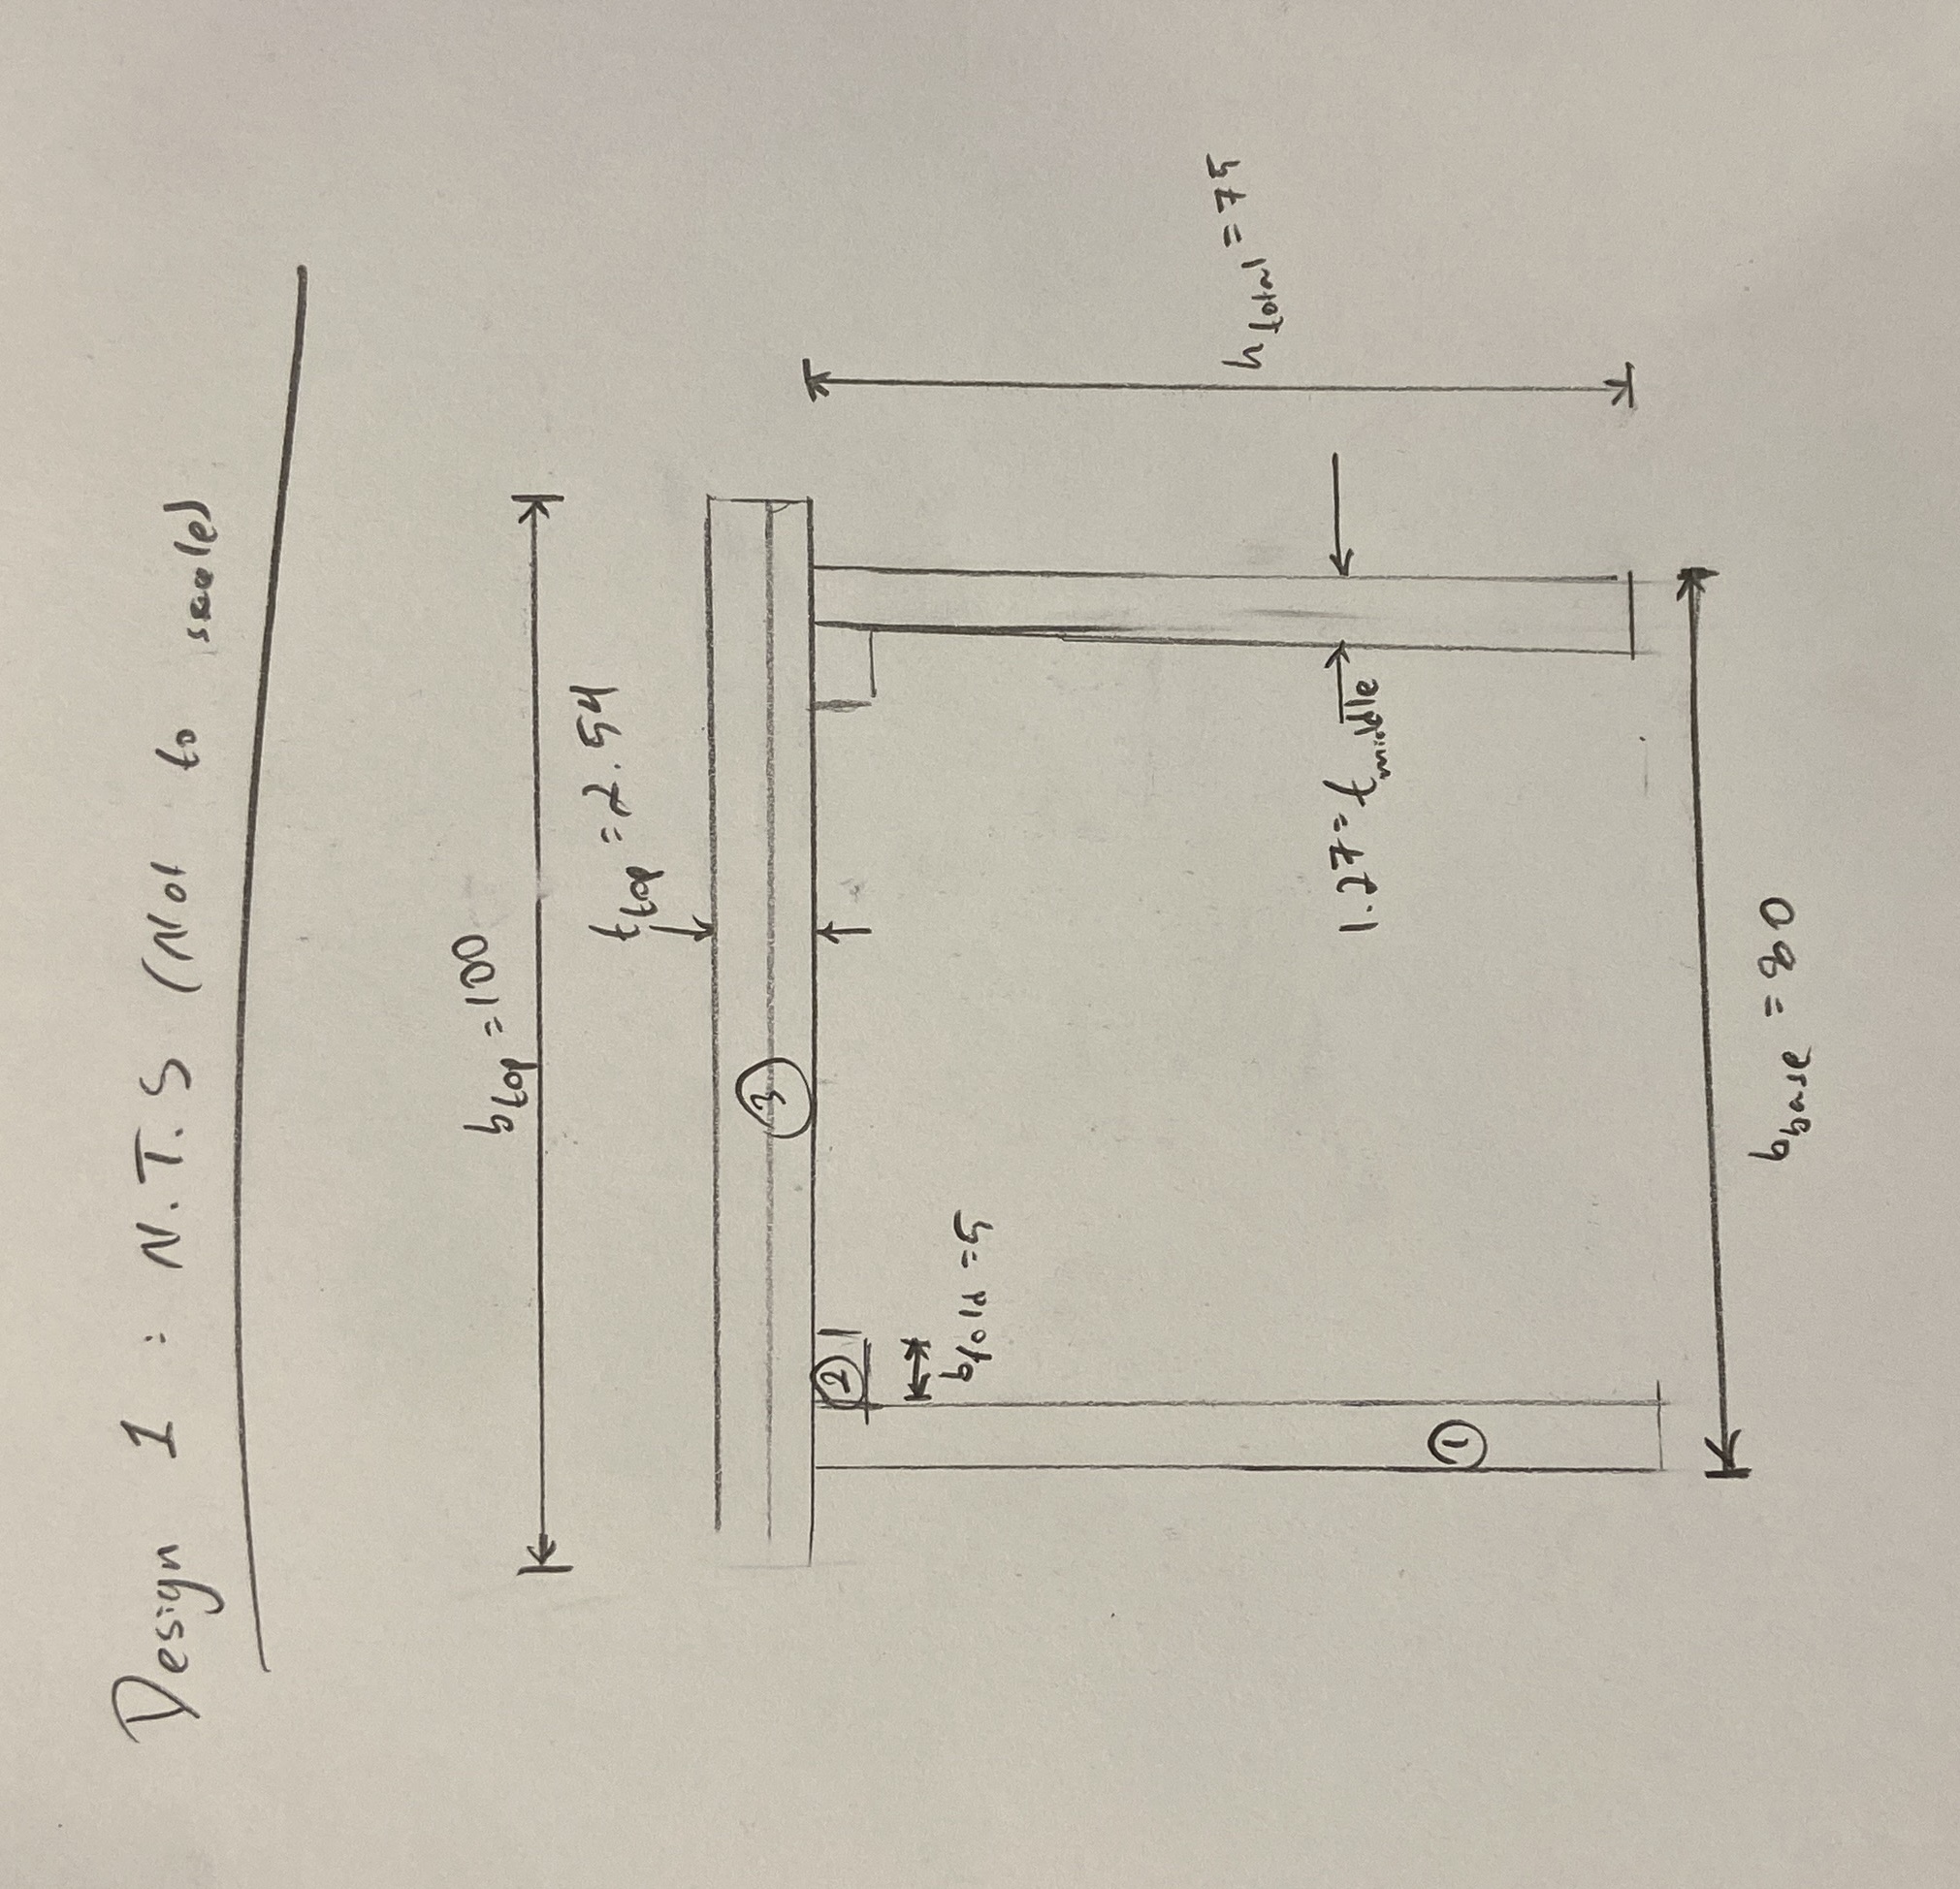 Design 1 : N.T.S (Not to scale)
b top = 100
t top = 2.54
3
2
b fold = 5
h total = 75
1.27 = t middle
1
b base = 80